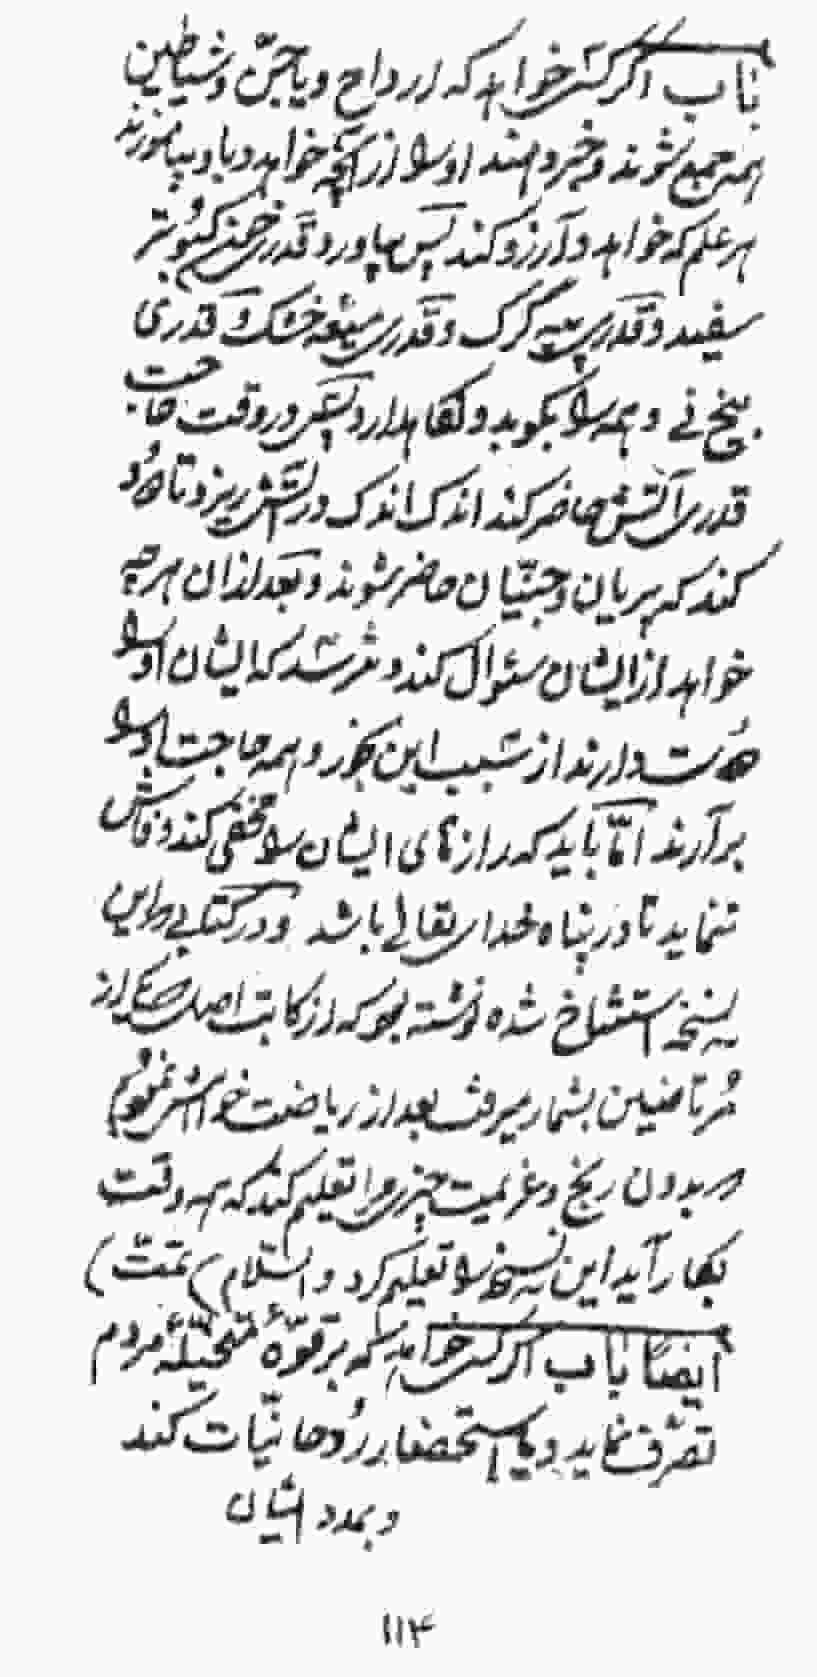 باب اگر کسی خواهد که ارواح و یا جنّ و شیاطین
همه جمع شوند و خبر دهند او را از آنچه خواهد و باو بیاموزند
هر علم که خواهد و آرزو کند پس بیاورد قدری تخم کبوتر
سفید و قدری پیه گرگ و قدری میعه خشک و قدری
بیخ نی و همه را بکوبد و نگاهدارد پس در وقت حاجت
قدری آتش حاضر کند اندک اندک در آتش ریزد تا دود
کند که پریان و جنّیان حاضر شوند و بعد از آن هر چه
خواهد از ایشان سئوال کند و نترسد که ایشان او را
دوست دارند از سبب این بخور و همه حاجت او را
برآرند امّا باید که رازهای ایشان را مخفی کند و فاش
ننماید تا در پناه خدای تعالی باشد و در کتابی که این
نسخه استنساخ شده نوشته بود که از کاتب اصل که از
مرتاضین بشمار میرفت بعد از ریاضت خواهش نمودم
که بدون رنج و عزیمت چیزی مرا تعلیم کند که همه وقت
بکار آید این نسخه را تعلیم کرد والسّلام (تمّت)
ایضًا باب اگر کسی خواهد که بر قوّهٔ متخیّلهٔ مردم
تصرّف نماید و یا استحضار روحانیّات کند
و بمدد ایشان
۱۱۴